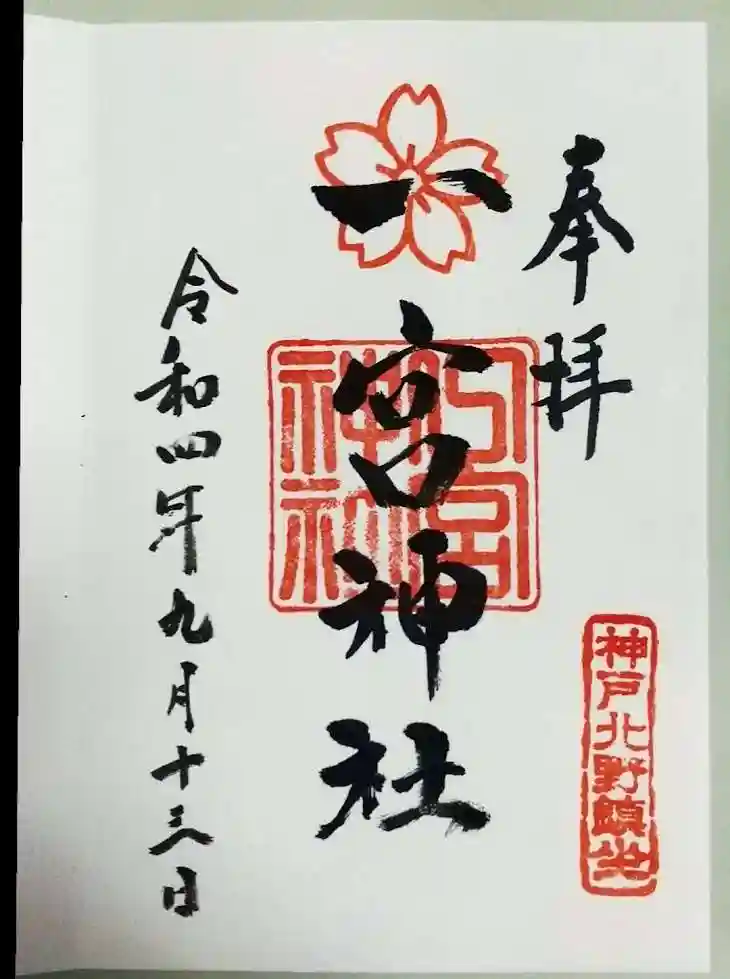 奉拝
一宮神社
一宮神社
神戸北野鎮坐
令和四年九月十三日